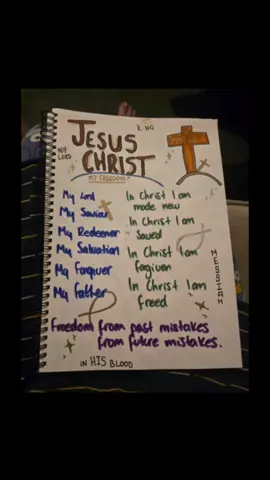 KING
JESUS
MY LORD
CHRIST
MY FREEDOM
My Lord
My Savior
My Redeemer
My Salvation
My Forgiver
My Father
In Christ I am
made new
In Christ I am
Saved
In Christ I am
forgiven
In Christ I am
freed
MESSIAH
Freedom from past mistakes
from future mistakes.
IN HIS BLOOD